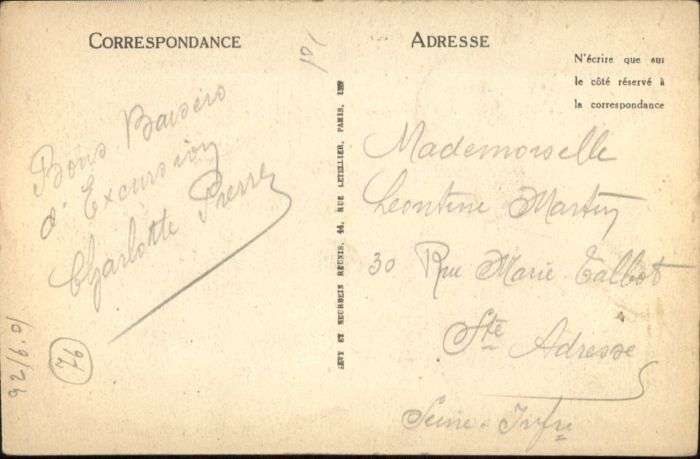 CORRESPONDANCE
101
Bons Baisers
d'Excursion
Charlotte Pierre
76
ADRESSE
N'écrire que sur
le côté réservé à
la correspondance
LEVY ET NEURDEIN REUNIS, 44, RUE LETELLIER, PARIS,
Mademoiselle
Leontine Martin
30 Rue Marie Talbot
Ste Adresse
Seine-Infre